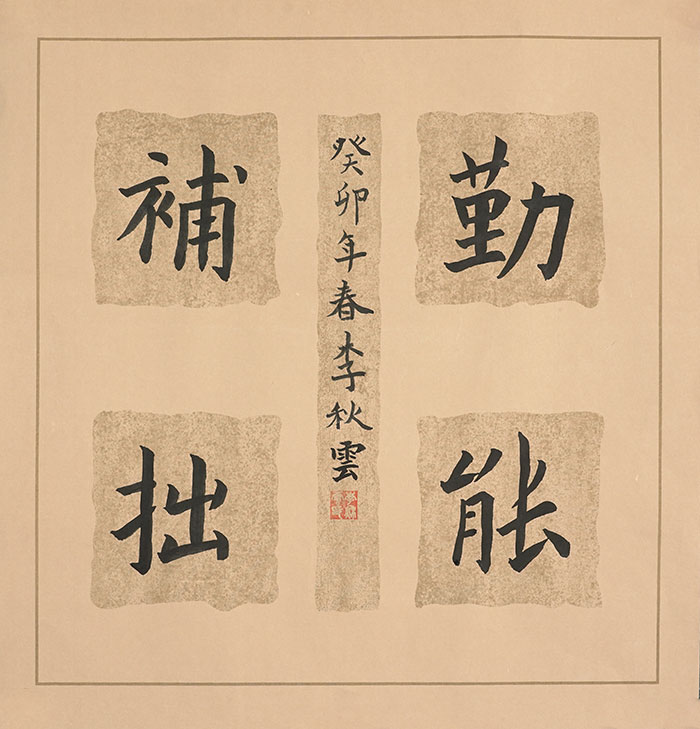 勤能
補拙
癸卯年春李秋雲